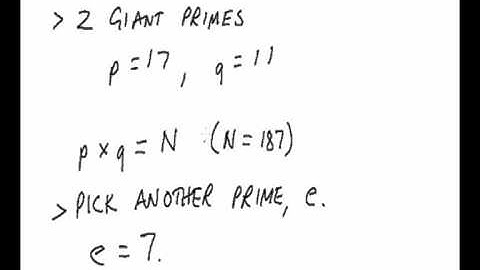 > 2 GIANT PRIMES
p = 17, q = 11
p × q = N (N = 187)
> PICK ANOTHER PRIME, e.
e = 7.